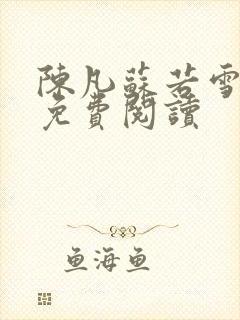 陳凡蘇若雪
免費閱讀
鱼海鱼